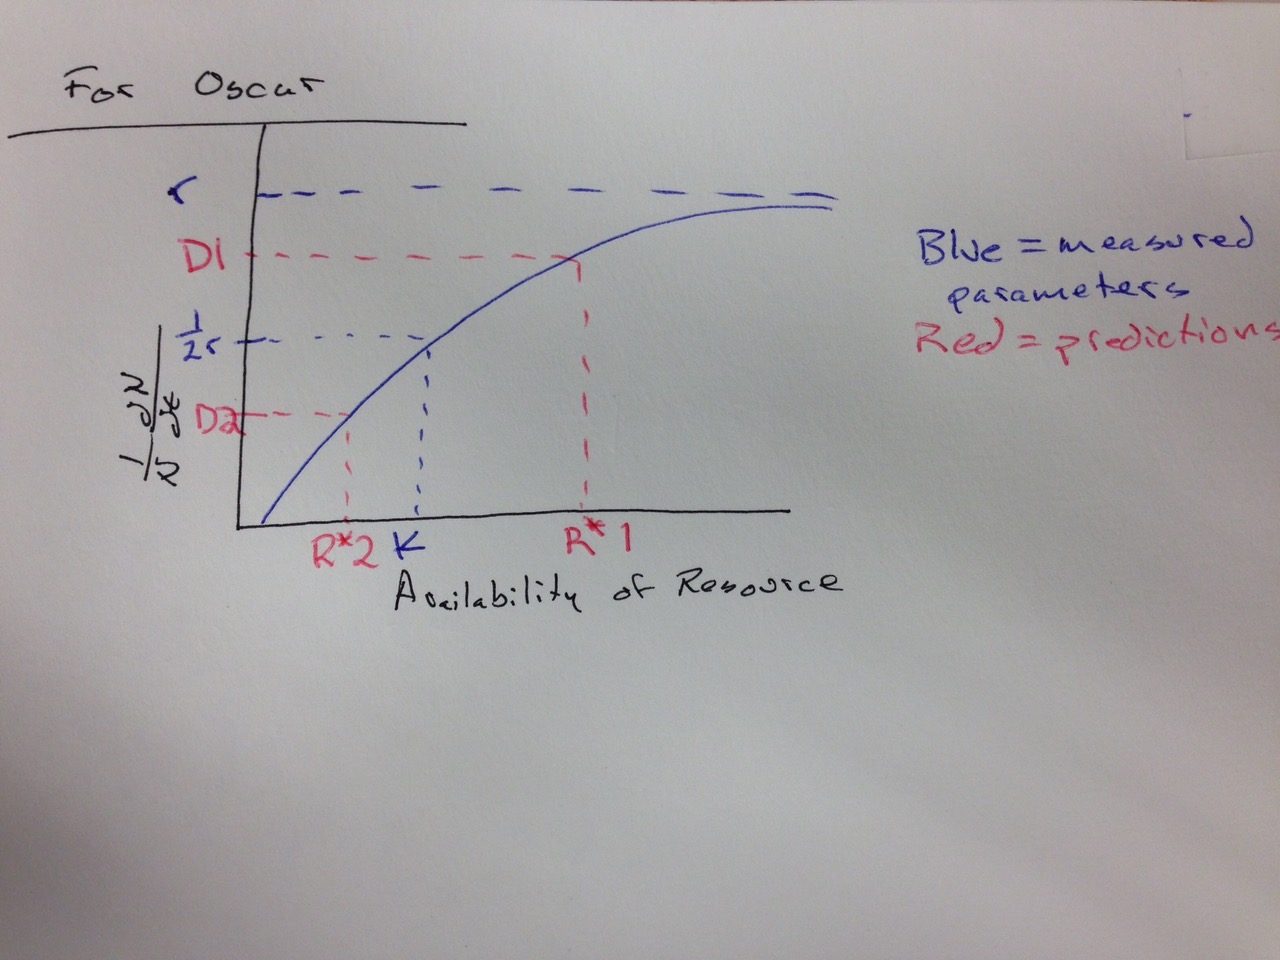 For Oscar
r
D1
1/2r
D2
1/N dN/dt
R*2 K R*1
Availability of Resource
Blue = measured
parameters
Red = predictions